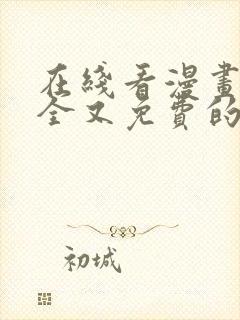 在綫看漫畫
全又免費的
初城